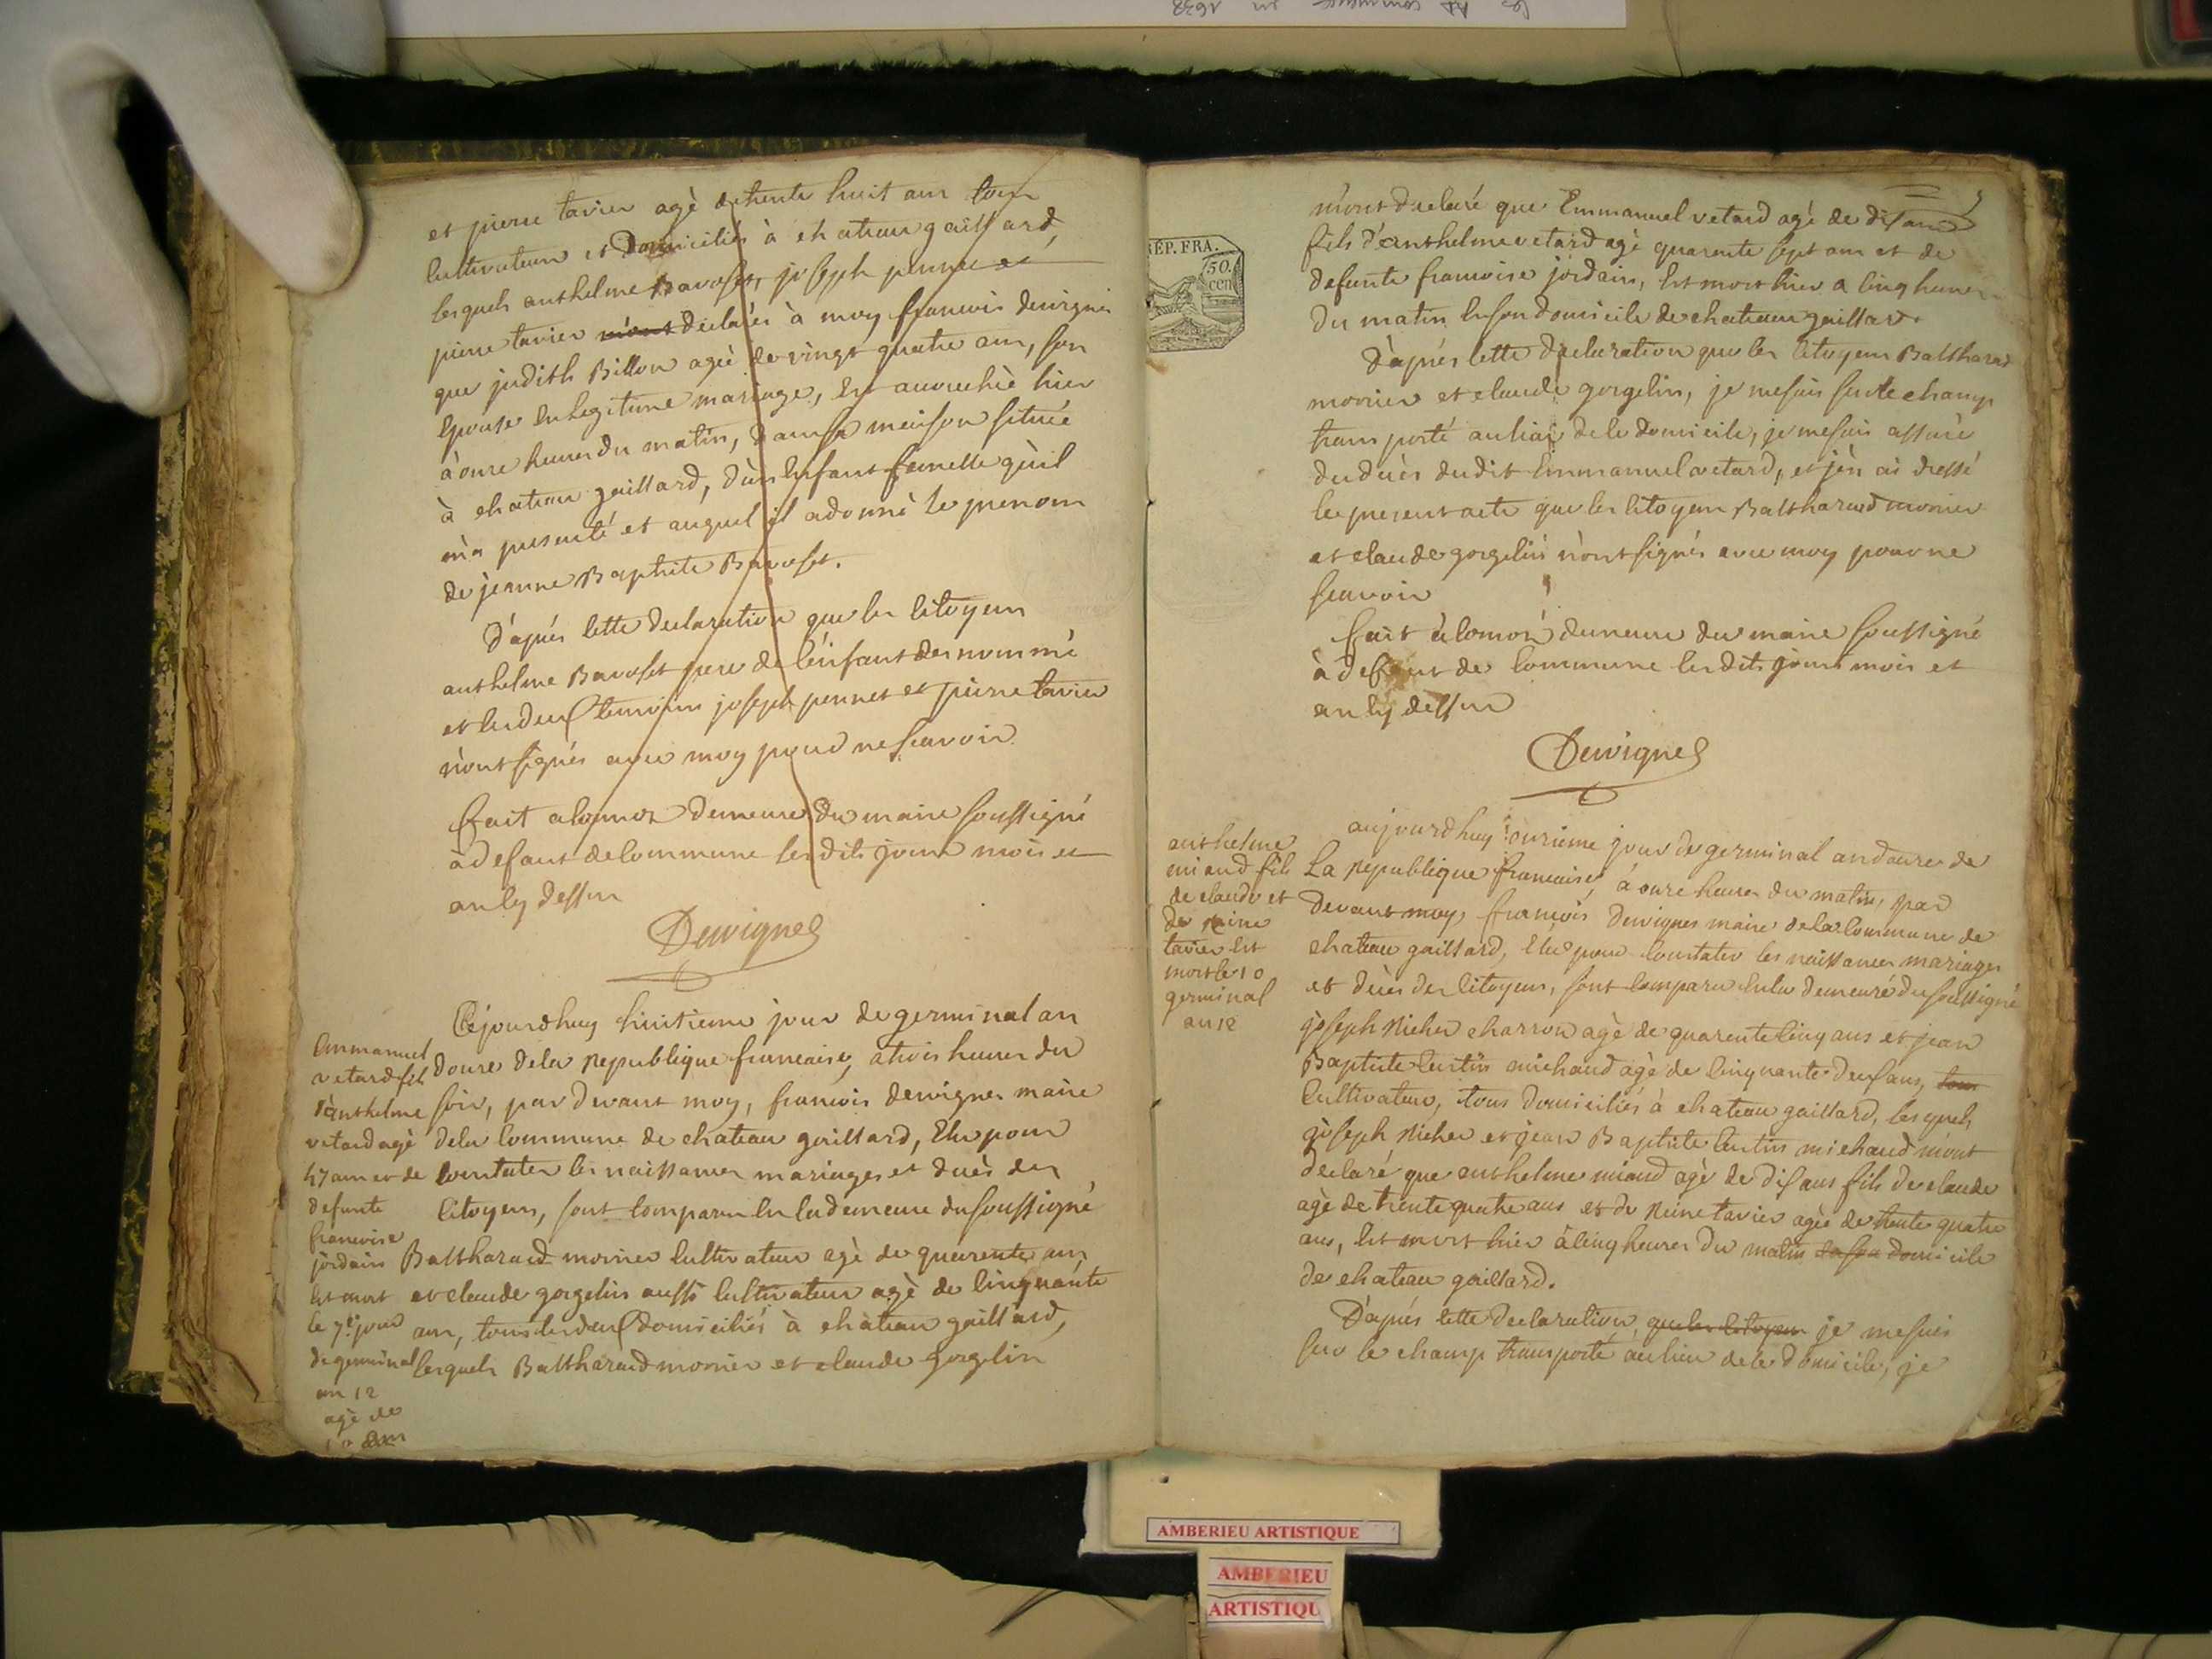 et pierre tavier agè de trente huit ans tous
cultivateurs et domiciliés à chateau gaillard,
lesquels anthelme Bavoset, joseph pennet et
pierre tavier m'ont declarés à moy francois dervignes
que judith Billon agée de vingt quatre ans, son
epouse en legitime mariage, est accouchée hier
à onze heures du matin, dans sa maison située
à chateau gaillard, d'un enfant femelle qu'il
m'a presenté et auquel il a donné le prenom
de jeanne Baptiste Bavoset.
D'après cette declaration que les citoyens
anthelme Bavoset pere de l'enfant denommé
et les deux temoins joseph pennet et pierre tavier
n'ont signés avec moy pour ne scavoir
fait a lomot demeure du maire soussigné
à defaut de commune les dits jours mois et
an cy dessus
Dervignes
Emmanuel
vetard fils
d'anthelme
vetard agè
47 ans et de
defunte
francoise
jordain
est mort
le 7e jour
de germinal
an 12
agè de
10 ans
Cejourdhuy huitieme jour de germinal an
douze de la republique francaise, a trois heures du
soir, par devant moy, francois dervignes maire
de la commune de chateau gaillard, elu pour
constater les naissances mariages et decès des
citoyens, sont comparu en la demeure du soussigné
Baltharard monier cultivateur agè de quarente ans
et claude gorgelin aussi cultivateur agè de cinquante
ans, tous les deux domiciliés à chàteau gaillard,
lesquels Baltharard monier et claude gorgelin
RÉP. FRA.
50.
cen
m'ont declaré que Emmanuel vetard agé de dix ans
fils d'anthelme vetard agè quarente sept ans et de
defunte francoise jordain, est mort hier a cinq heures
du matin en son domicile de chateau gaillard.
D'après cette declaration que les citoyens Baltharard
monier et claude gorgelin, je me suis sur le champ
transporté au lieu de le domicile, je me suis assuré
du decès du dit Emmanuel vetard, et j'en ai dressé
le present acte que les citoyens Baltharard monier
et claude gorgelin n'ont signés avec moy pour ne
scavoir
fait à lomot demeure du maire soussigné
à defaut de commune les dits jours mois et
an cy dessus
Dervignes
anthelme
miaud fils
de claude et
de reine
tavier est
mort le 10
germinal
an 12
aujourdhuy onzieme jour de germinal an douze de
La republique francaise, à onze heures du matin, par
devant moy francois dervignes maire de la commune de
chateau gaillard, elu pour constater les naissances mariages
et decès des citoyens, sont comparu en la demeure du soussigné
joseph nicher charron agè de quarente cinq ans et jean
Baptiste curtin michaud agè de cinquante deux ans, tous
cultivateur, tous domiciliés à chateau gaillard, lesquels
joseph nicher et jean Baptiste curtin michaud m'ont
declaré que anthelme miaud agè de dix ans fils de claude
agè de trente quatre ans et de reine tavier agée de trente quatre
ans, est mort hier à cinq heures du matin en son domicile
de chateau gaillard.
D'après cette declaration que les citoyens je me suis
sur le champ transporté au lieu de le domicile, je
AMBERIEU ARTISTIQUE
AMBERIEU
ARTISTIQU